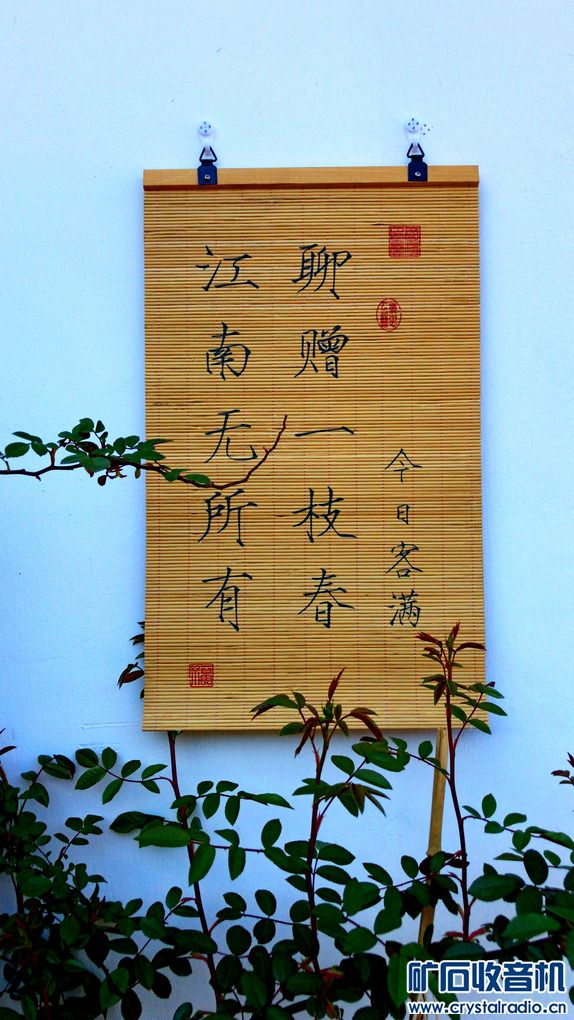 今日客满
聊赠一枝春
江南无所有
矿石收音机
www.crystalradio.cn